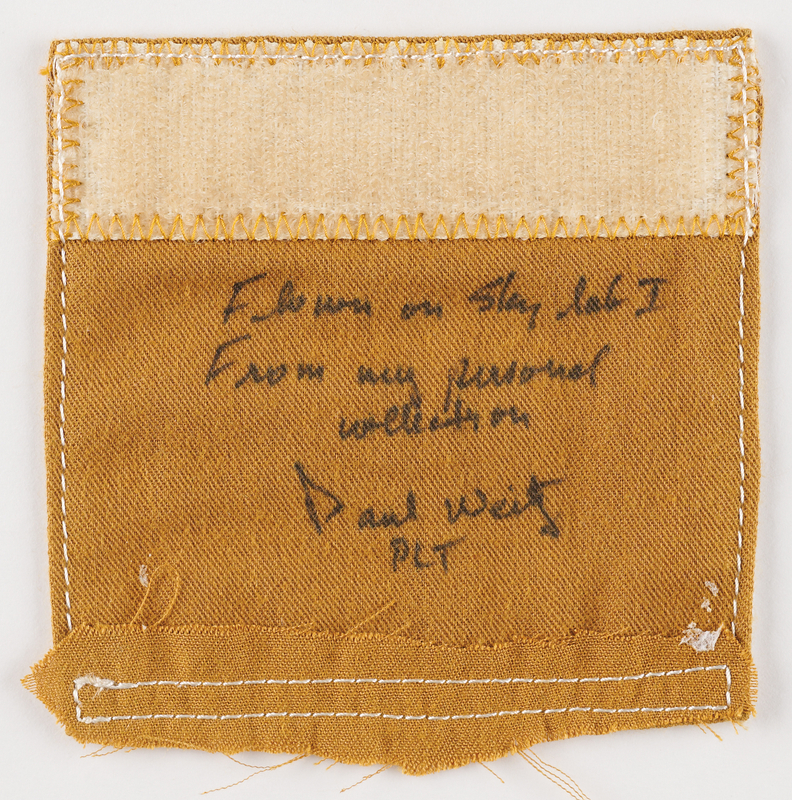 Flown on Skylab I
From my personal
collection
Paul Weitz
PLT